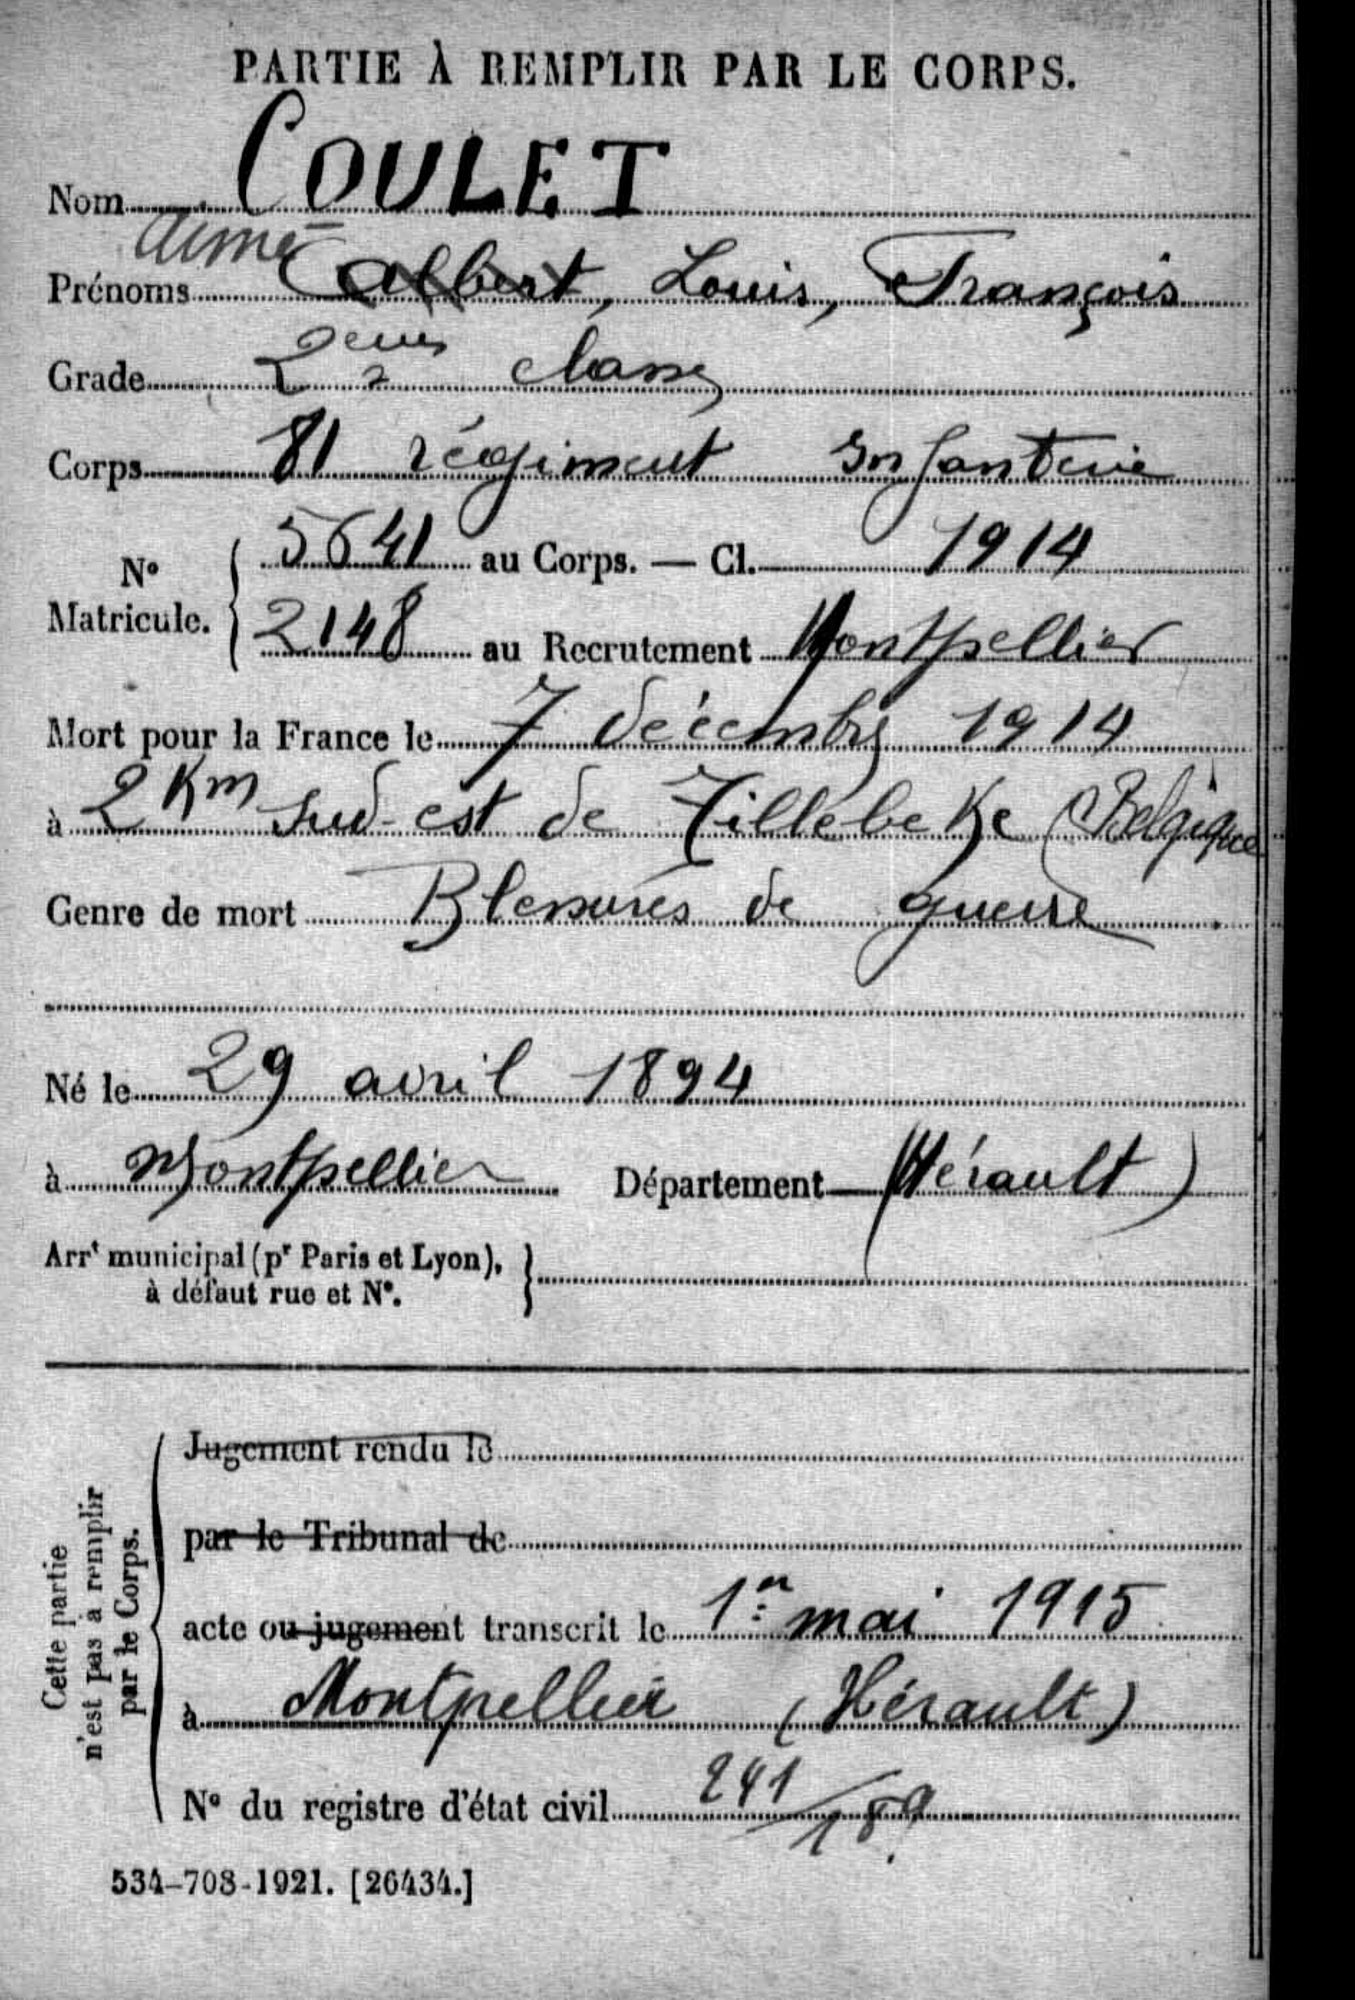 PARTIE À REMPLIR PAR LE CORPS.
Nom COULET
Aimé
Prénoms Albert, Louis, François
Grade 2eme classe
Corps 81 régiment Infanterie
No Matricule. 5641 au Corps. — Cl. 1914
2148 au Recrutement Montpellier
Mort pour la France le 7 décembre 1914
à 2 Km Sud-est de Zillebeke (Belgique
Genre de mort Blessures de guerre
Né le 29 avril 1894
à Montpellier Département (Hérault)
Arrt municipal (pr Paris et Lyon),
à défaut rue et No.
Cette partie
n'est pas à remplir
par le Corps.
Jugement rendu le
par le Tribunal de
acte ou jugement transcrit le 1er mai 1915
à Montpellier (Hérault)
No du registre d'état civil 241/189
534-708-1921. [26434.]